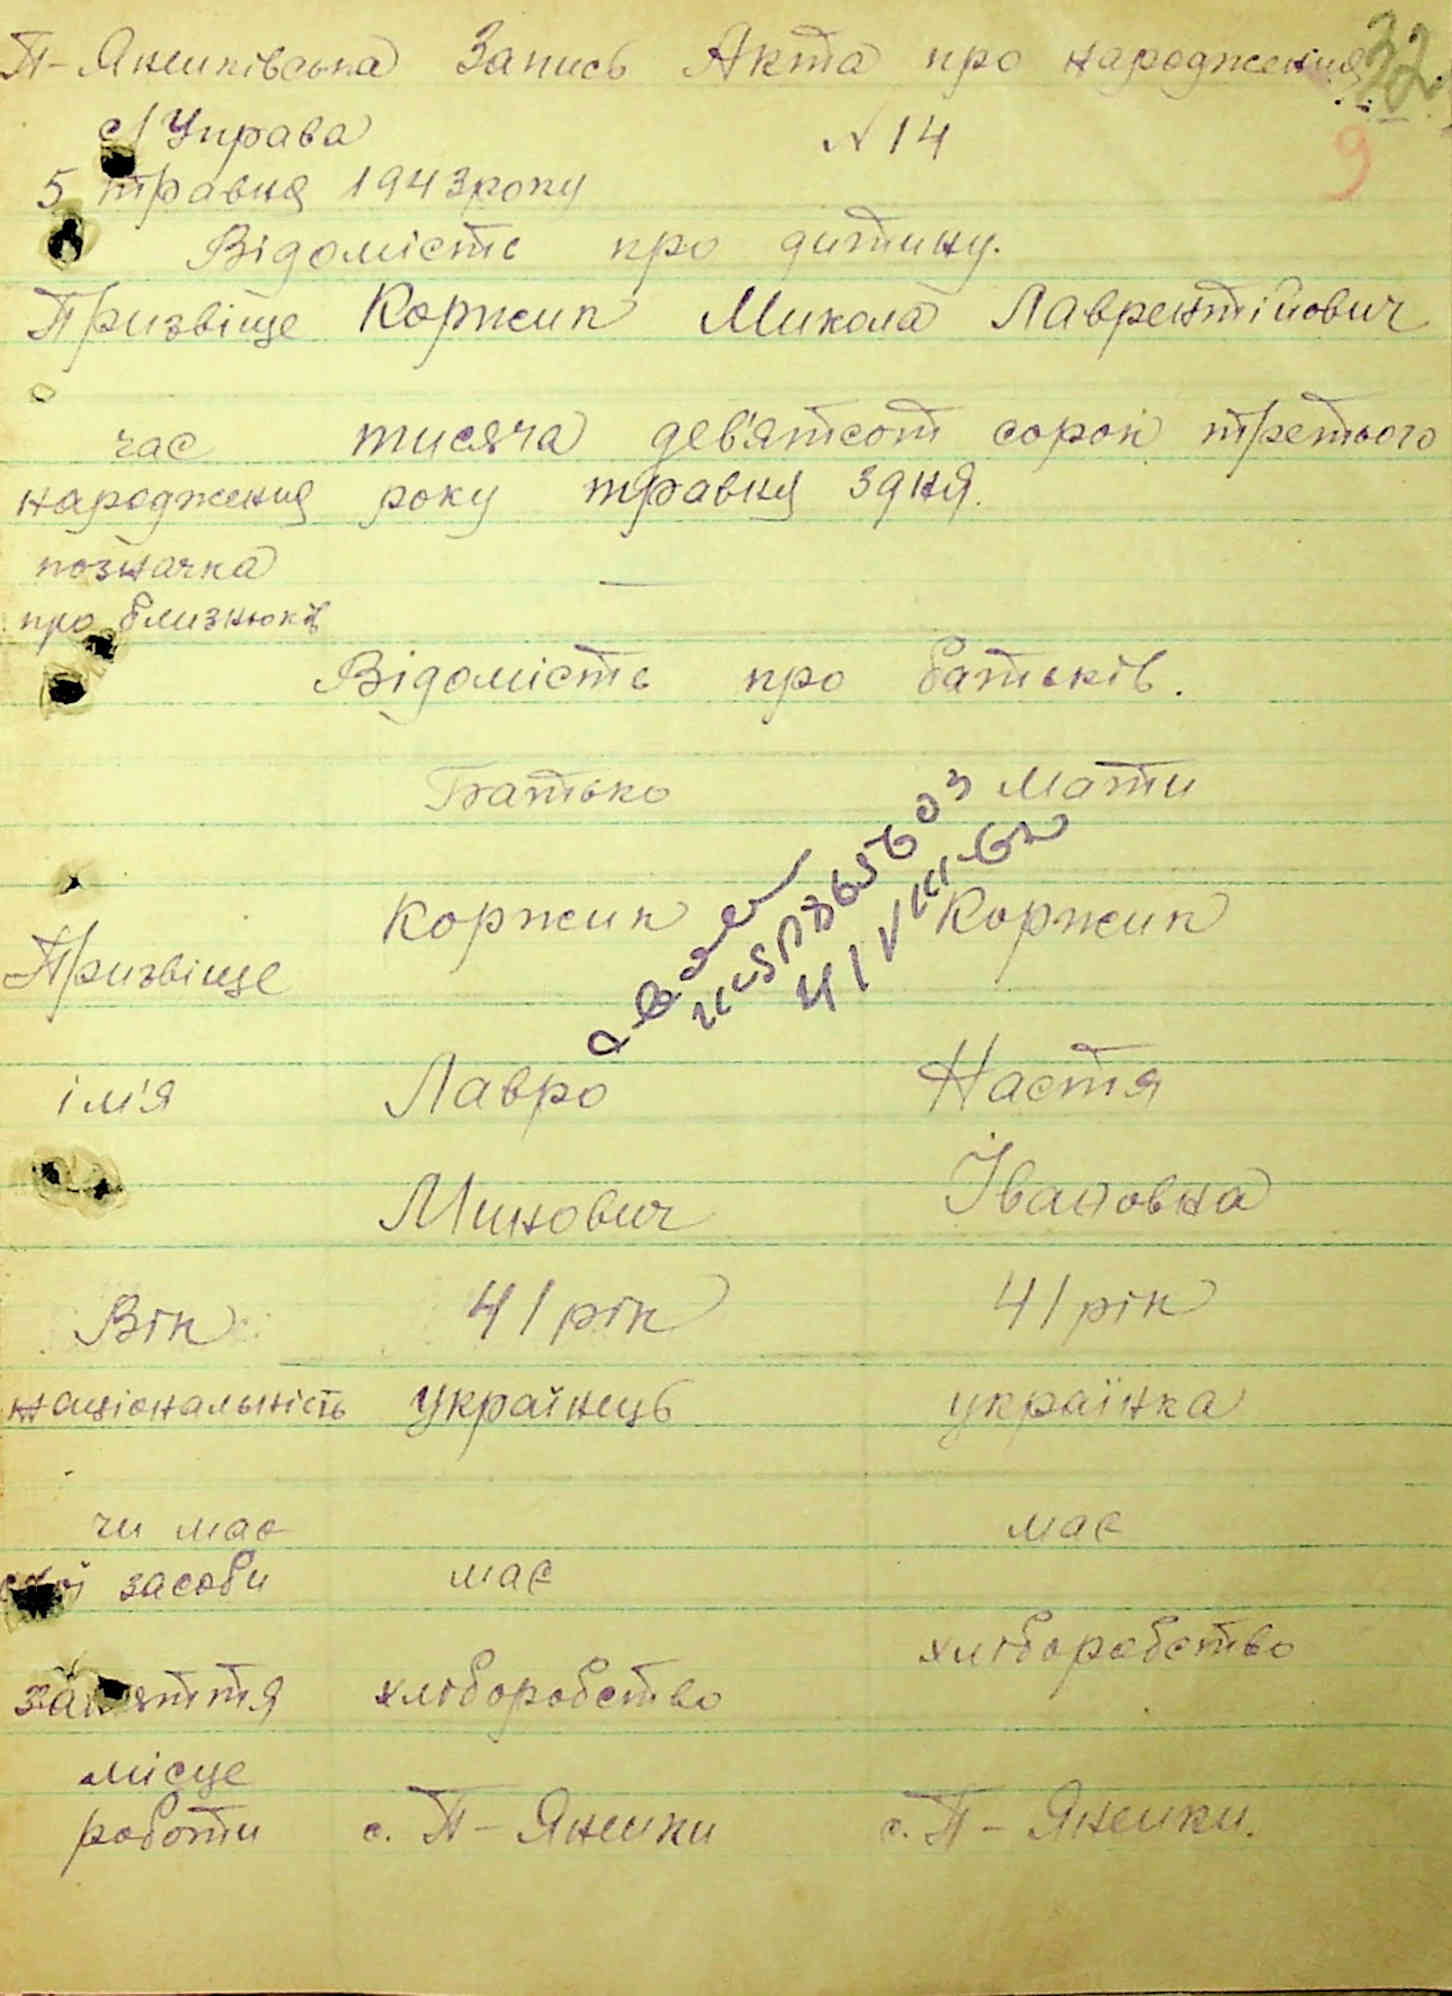 П-Янчиківська Запись Акта про народження 32.
с/Управа №14 9
5 травня 1943 року
Відомість про дитину.
Призвіще Коржик Микола Лаврентійович
час тисяча дев'ятсот сорок третього
народження року травня 3 дня.
позначка —
про близнюків
Відомість про батьків.
Батько Мати
Призвіще Коржик Коржик
ім'я Лавро Настя
Минович Івановна
Вік 41 рік 41 рік
національність українець українка
чи має має
свої засоби має
заняття хліборобство хліборобство
місце
роботи с. П-Янчики с. П-Янчики.